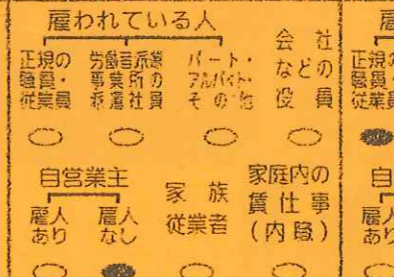 雇われている人
正規の職員・従業員
労働者派遣事業所の派遣社員
パート・アルバイト・その他
会社などの役員
自営業主
雇人あり
雇人なし
家族従業者
家庭内の賃仕事（内職）
正規の職員・従業員